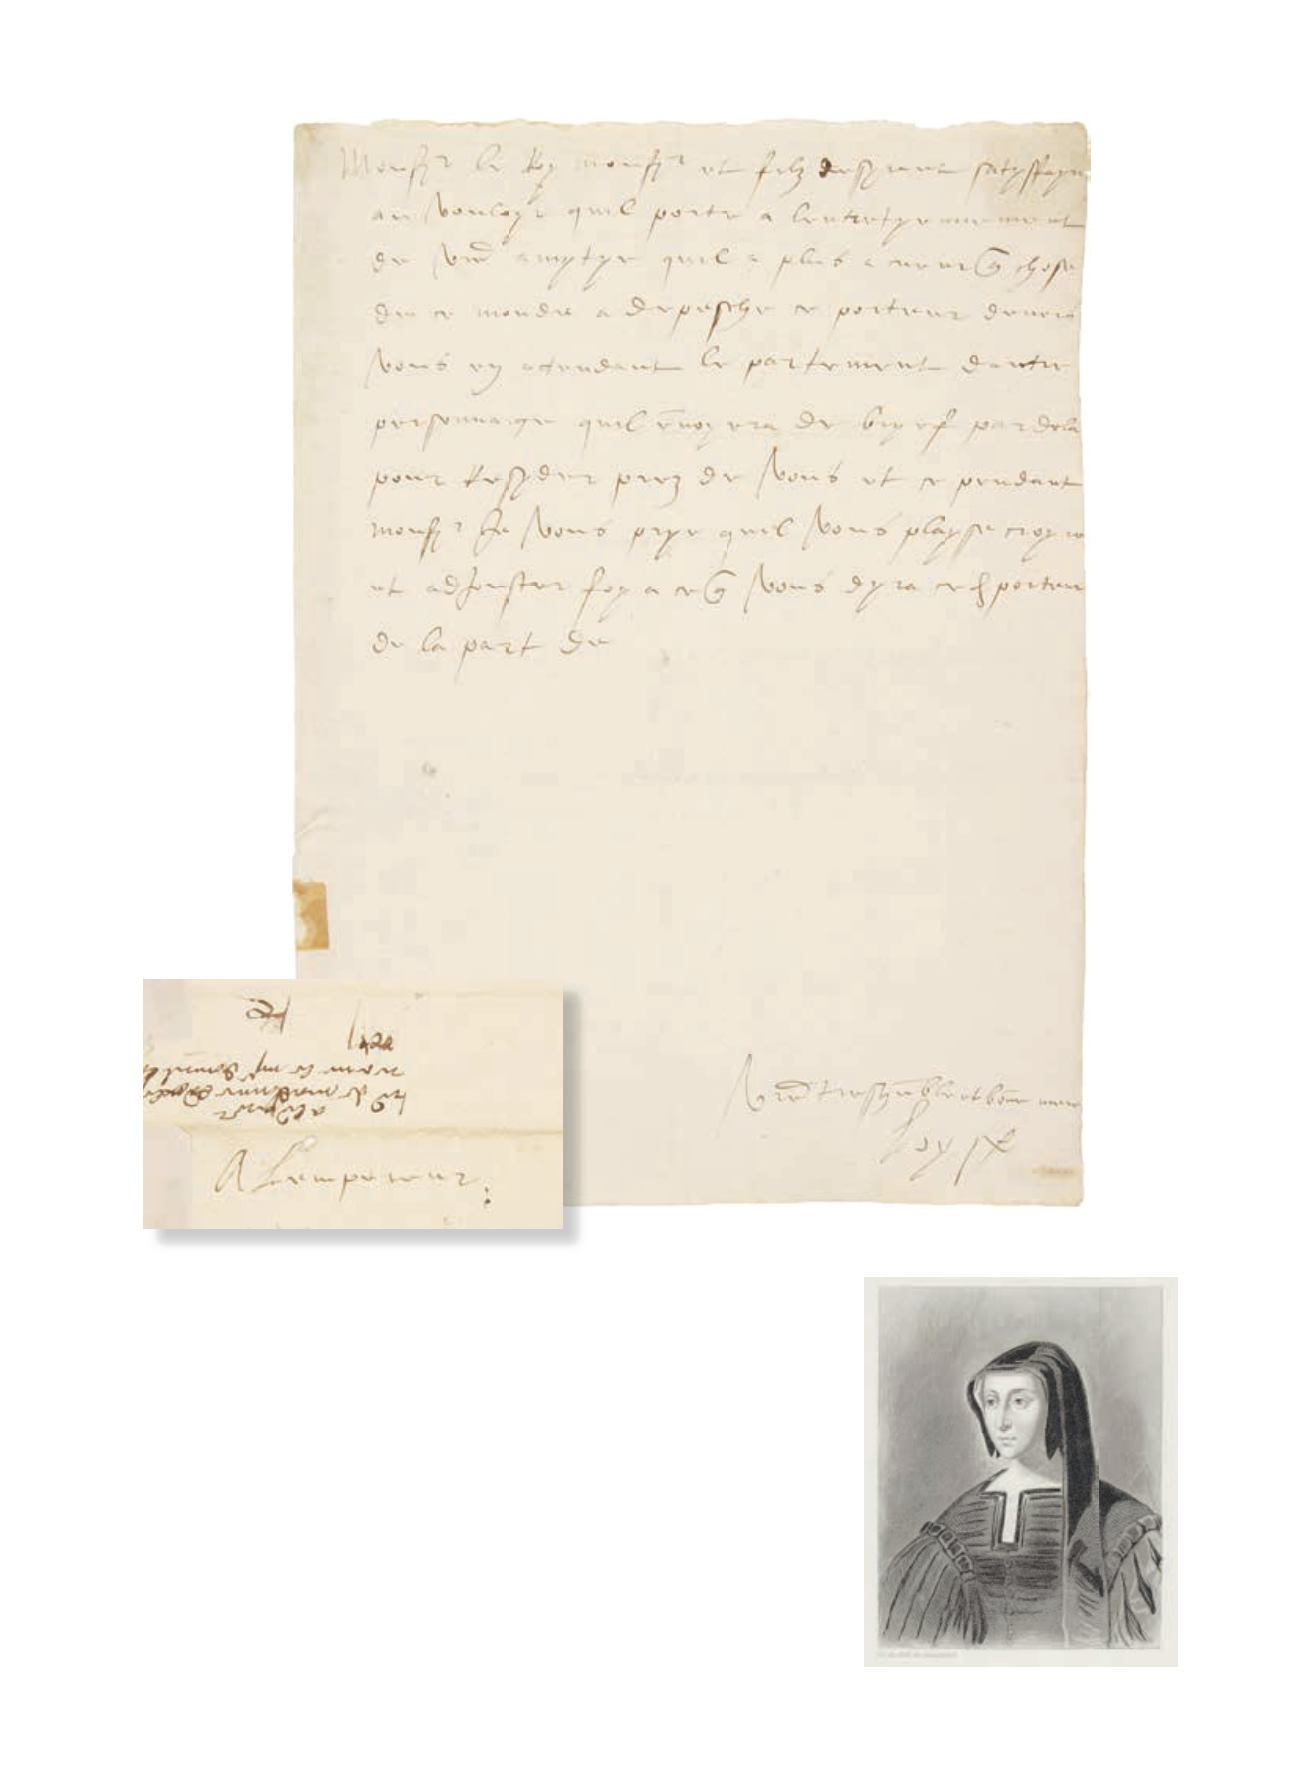 Monsr le Roy monsr et filz desyrant satysfayre
au vouloyr quil porte a lentretyennement
de vre amytye quil a plus a cueur q chose
de ce monde a depesche ce porteur devers
vous en atendant le partement dautre
personnaige quil envoyera de bryef par dela
pour Resyder prez de vous et ce pendant
monsr Je vous prye quil vous playse croyre
et adjouster foy a ce q vous dyra ced porteur
de la part de
Vre treshumble et bonne mere
Loyse
A Lempereur